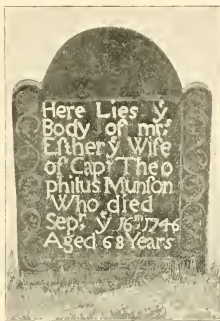 Here Lies yͤ
Body of mrͬˢ
Eſther yͤ Wife
of Capᵗ Theo
philus Munſon
Who died
Sepᵗ yͤ 16ᵗʰ 1746
Aged 68 Years